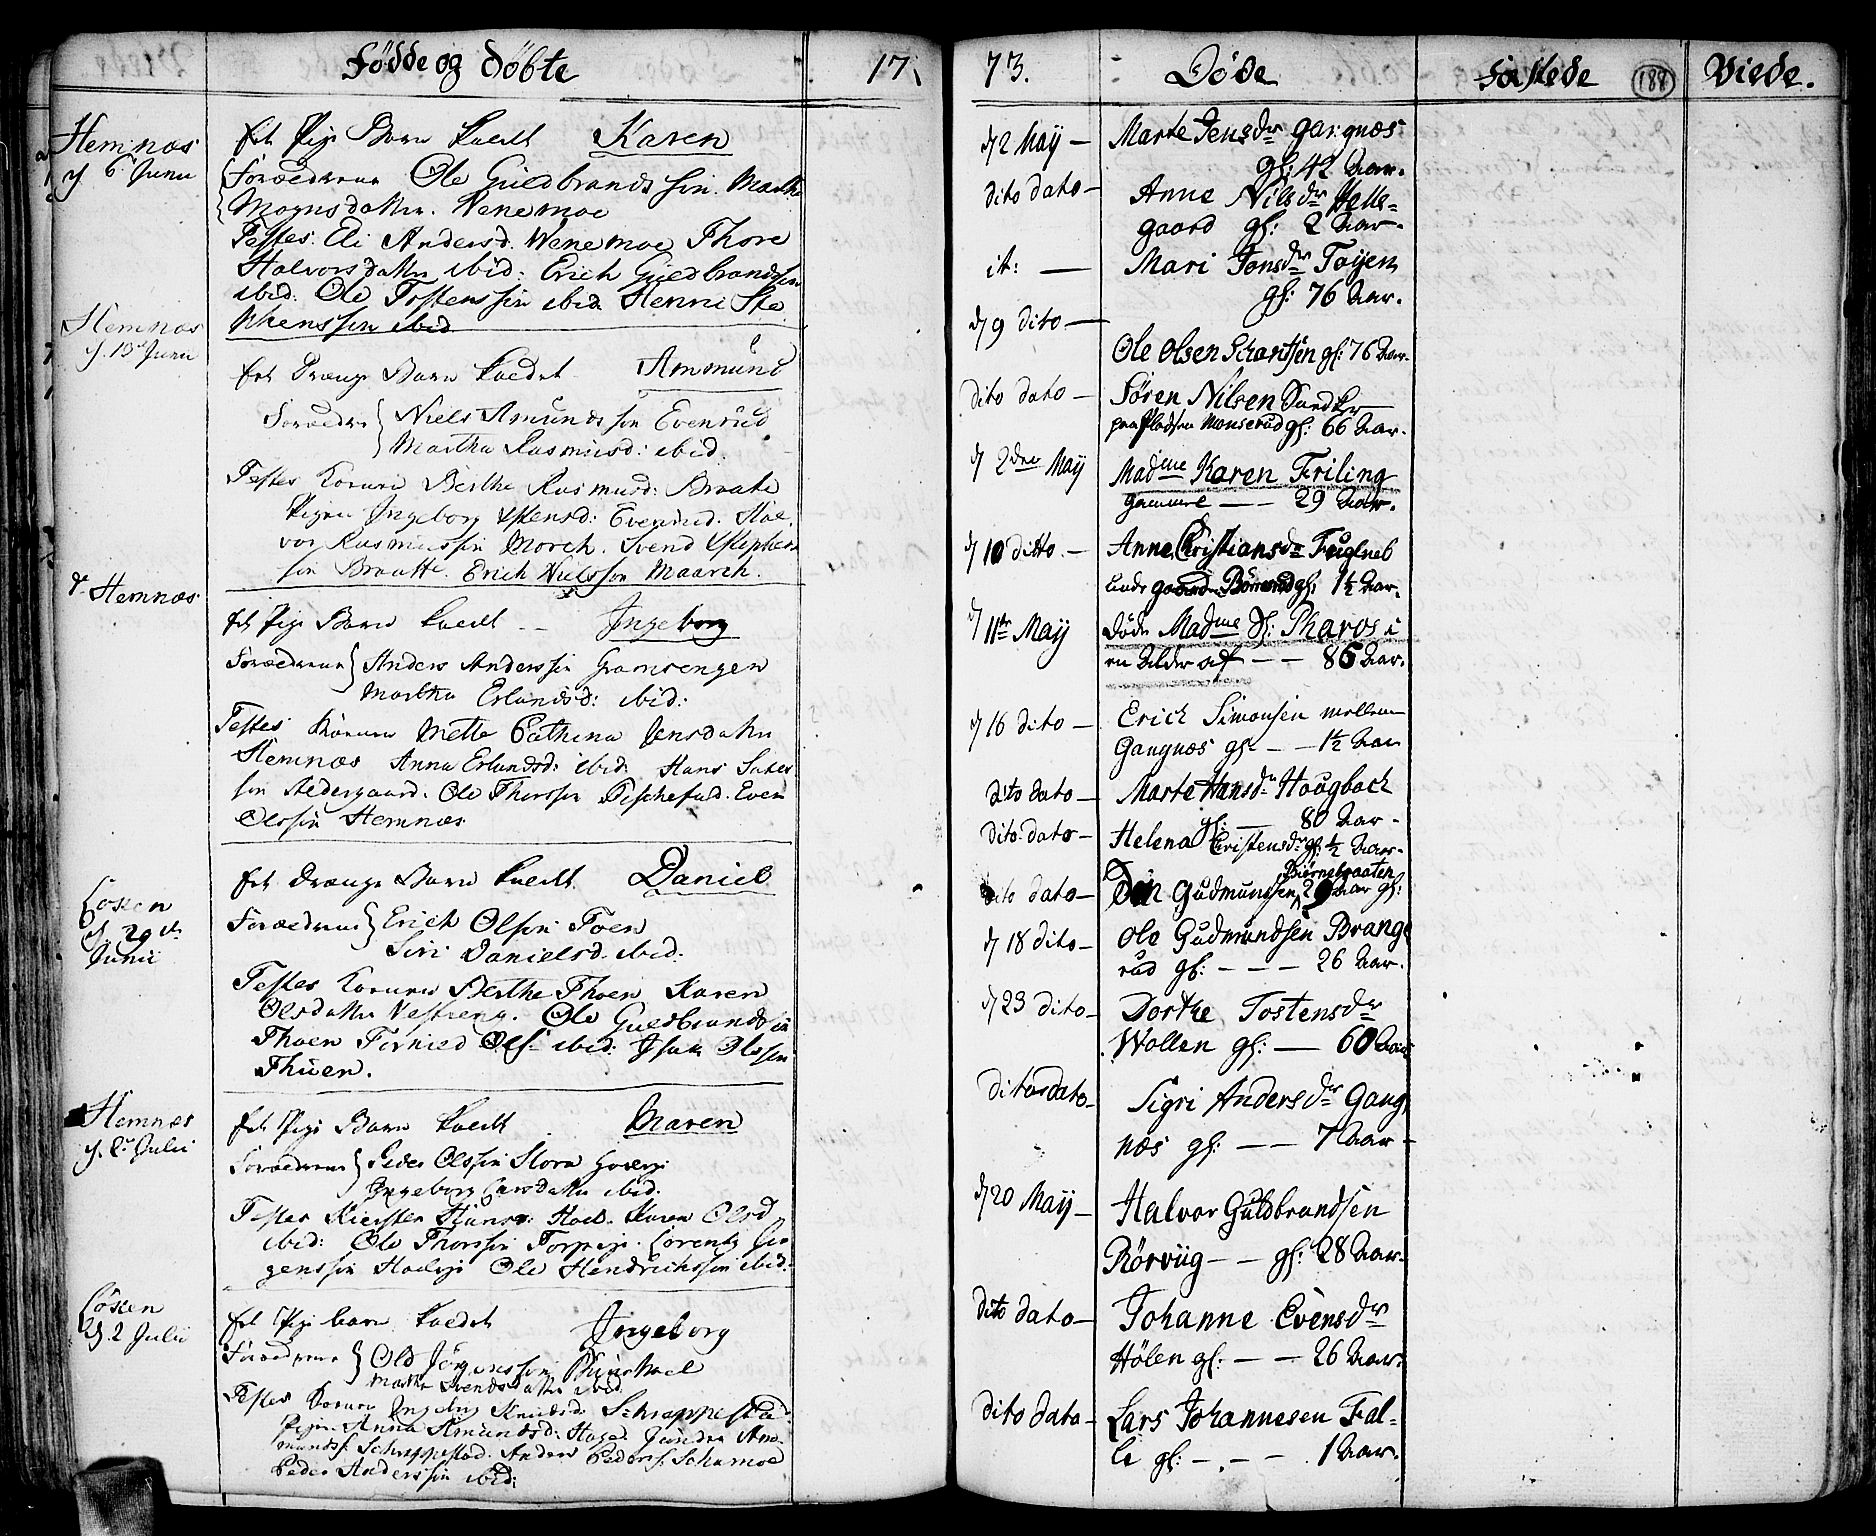 Fødde og Døbte 17
Hemnæs
d. 6 Junii
et Pige Barn kaldt Karen
Forældrene Ole Guldbrandssøn. Marthe
Mognsdatter. Wenemoe
Testes. Eli Andersd. Wenemoe Thore
Halvorsdatter ibid: Erich Guldbrandssøn
ibid: Ole Tostenssøn ibid Henni Ste
phenssøn ibid
Hemnæs
d. 13 Junii
et Drænge Barn kaldet Ammund
Forældre Niels Amundssøn Evensrud
Martha Rasmusd: ibid.
Testes Konen Berthe Rasmusd: Braate
Pigen Ingeborg Evensrud. Hal
vor Rasmussøn Morch. Svend Stephen
søn Braatte. Erich Nielssøn Maarch.
d. Hemnæs
et Pige Barn kaldt -- Ingeborg
Forældrene Anders Anderssøn Gramsengen
Martha Erlandsd: ibid:
Testes Konen Mette Cathrina Jensdatter
Hemnæs Anna Erlandsd: ibid: Hans
søn Nedergaard. Ole Thorssøn Even
Olssøn Hemnæs
Løken
d. 20de
Junii
et Drænge Barn kaldt Daniel
Forældrene Erich Olssøn Toen
Siri Danielsd. ibid.
Testes Konen Berthe Thoen Karen
Olsdatter Vestreng. Ole Guldbrandssøn
Thoen Ols: ibid: Isak Olssøn
Thuen.
Hemnæs
d. 2 Julii
et Pige Barn kaldt Maren
Forældrene Peder Olssøn Store
Ingeborg Larsdatter ibid.
Testes Kiersten Hansd: Karen Olsd
ibid: Ole Thorssøn Torpige. Lorentz Jør
genssøn Ole Hendrichssøn ibid:
Løken
d. 2 Julii
et Pige barn kaldet Ingeborg
Forældrene Ole Jørgenssøn
Marthe Svendsdatter ibid.
Testes Konen Ingeborg Knudsd. Schrappestad
Pigen Anna Amundsd: Am
munds: Schrappestad. Anders Peders: Schamoe
Peder Anderssøn ibid:
73. Døde Fæstede 188 Viede.
d 2 Maÿ — Marte Jensdr Gangnæs
gl: 42 Aar.
dito dato — Anne Nilsdr Helle=
gaard gl: 2 Aar.
it: — Mari Jonsdr Toÿen
gl: 76 Aar.
d 9 dito —
Ole Olsen gl: 76 Aar.
dito dato — Søren Nilsen
paa Pladsen Monserud gl: 66 Aar.
d 2den Maÿ Madme Karen Friling
gammel — 29 Aar.
d 10 ditto — Anne Christiansdr
gl: 1½ Aar.
d 11te Maÿ Døde Madme Sl: Pharos i
en Alder af — — 86 Aar.
d 16 dito — Erich Simonsen mellem
Gangnæs gl — — 1½ Aar
dito dato — Marte Hansdr Hougbach
gl: — 80 Aar.
dito dato — Helena Cristensdr gl: ½ Aar.
Biørnebraaten
dito dato — Gudmundsen 29 Aar gl:
d 18 dito — Ole Gudmundsen Brange
rud gl: — — — 26 Aar.
d 23 dito — Dorthe Tostensdr
Wollen gl: — 60 Aar
dito dato — Sigri Andersdr Gang
næs gl: — — 7 Aar
d 20 Maÿ — Halvor Guldbrandsen
Rörviig — — gl: 28 Aar.
dito dato — Johanne Evensdr
Hölen gl: — — 26 Aar.
dito dato — Lars Johannesen Fal=
le gl: — . — — 1 Aar.